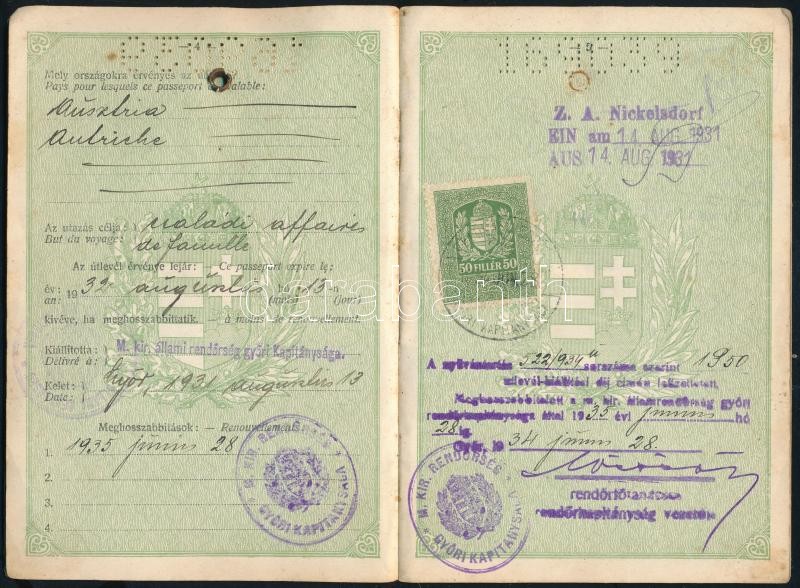 -4-
Mely országokra érvényes az
Pays pour lesquels ce passeport valable:
Ausztria
Autriche
Az utazás célja: családi affaires
But du voyage: de famille
Az útlevél érvénye lejár: — Ce passeport expire le:
év: 1932 augusztus hó 13-n
an: (mois) (jour)
kivéve, ha meghosszabbíttatik. — à moins de renouvellement.
Kiállította: M. kir. állami rendőrség győri Kapitánysága.
Délivré à:
Kelet: Győr, 1931 augusztus 13
Date:
Meghosszabbítások: — Renouvellements:
1. 1935 június 28
2.
3.
4.
M. KIR. RENDŐRSÉG
GYŐRI KAPITÁNYSÁGA
-5-
Z. A. Nickelsdorf
EIN am 14 AUG 1931
AUS 14. AUG 1931
50 FILLÉR 50
GYŐRI KAPITÁNYSÁGA
A nyilvántartás 522/934 sorszáma szerint 1950
útlevél-kiállítási díj címén lefizettetett.
Meghosszabbíttatott a m. kir. államrendőrség győri
rendőrkapitánysága által 1935 évi június hó
28 ig.
Győr, 1934 június 28.
rendőrfőtanácsos
rendőrkapitányság vezetője
M. KIR. RENDŐRSÉG
GYŐRI KAPITÁNYSÁGA
darabanth